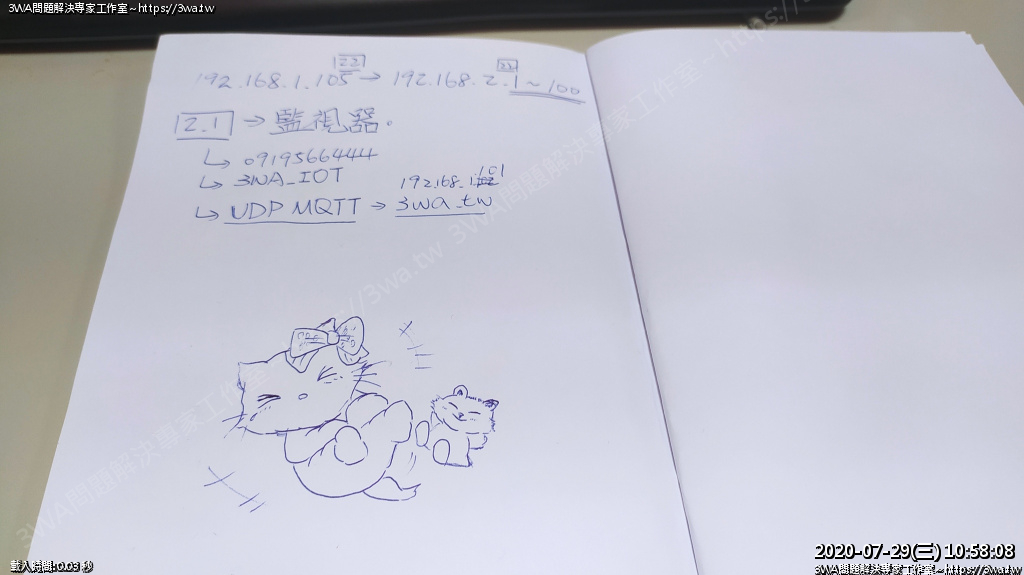 3WA問題解決專家工作室~https://3wa.tw
22 22
192.168.1.105 → 192.168.2.1 ~ 100
12.1 → 監視器.
↳ 0919566444
↳ 3WA_IOT
192.168.1.101
↳ UDP MQTT → 3wa.tw
3WA問題解決專家工作室~https://3wa.tw
3WA問題解決專家工作室~https://
2020-07-29(三) 10:58:08
載入時間:0.03 秒
3WA問題解決專家工作室~https://3wa.tw